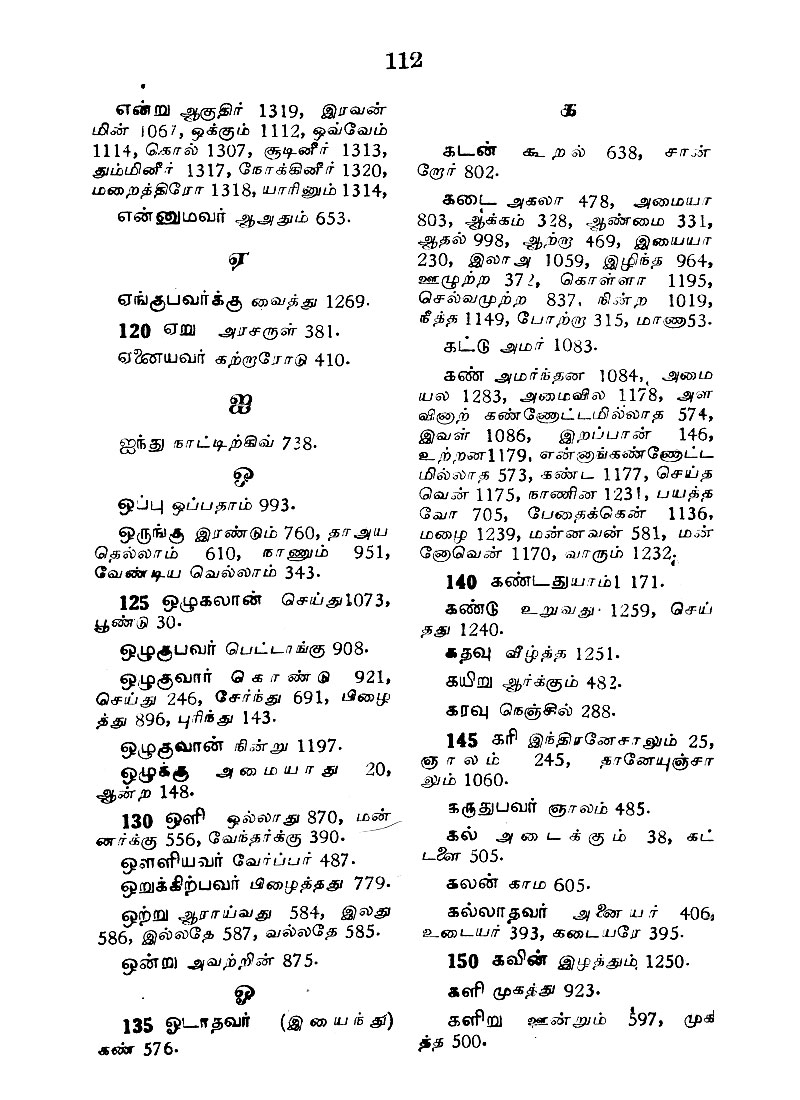 112
என்று ஆகுதிர் 1319, இரவன்
மின் 1067, ஒக்கும் 1112, ஒவ்வேம்
1114, கொல் 1307, சூடினீர் 1313,
தும்மினீர் 1317, நோக்கினீர் 1320,
மறைத்திரோ 1318, யாரினும் 1314,
என்னுமவர் ஆஅதும் 653.
ஏ
ஏங்குபவர்க்கு வைத்து 1269.
120 ஏறு அரசருள் 381.
ஏனையவர் கற்றாரோடு 410.
ஐ
ஐந்து நாட்டிற்கிவ் 738.
ஒ
ஒப்பு ஒப்பதாம் 993.
ஒருங்கு இரண்டும் 760, தாஅய
தெல்லாம் 610, நாணும் 951,
வேண்டிய வெல்லாம் 343.
125 ஒழுகலான் செய்து 1073,
பூண்டு 30.
ஒழுகுபவர் பெட்டாங்கு 908.
ஒழுகுவார் கொண்டு 921,
செய்து 246, சேர்ந்து 691, பிழை
த்து 896, புரிந்து 143.
ஒழுகுவான் நின்று 1197.
ஒழுக்கு அமையாது 20,
ஆன்ற 148.
130 ஒளி ஒல்லாது 870, மன்
னர்க்கு 556, வேந்தர்க்கு 390.
ஒளளியவர் வேர்ப்பர் 487.
ஒறுக்கிற்பவர் பிழைத்தது 779.
ஒற்று ஆராய்வது 584, இலது
586, இல்லதே 587, வல்லதே 585.
ஒன்று அவற்றின் 875.
ஓ
135 ஓடாதவர் (இயைந்து)
கண் 576.
க
கடன் கூறல் 638, சான்
றோர் 802.
கடை அகலா 478, அமையா
803, ஆக்கம் 328, ஆண்மை 331,
ஆதல் 998, ஆற்று 469, இயையா
230, இலாஅ 1059, இழிந்த 964,
ஊழுற்ற 372, கொள்ளா 1195,
செல்வமுற்ற 837, நின்ற 1019,
நீத்த 1149, போற்று 315, மாணா 53.
கட்டு அமர் 1083.
கண் அமர்ந்தன 1084, அமை
யல 1283, அமைவில 1178, அள
வினாற் கண்ணோட்டமில்லாத 574,
இவள் 1086, இறப்பான் 146,
உற்றன 1179, என்னாங்கண்ணோட்ட
மில்லாத 573, கண்ட 1177, செய்த
வென் 1175, நாணின 1231, பயத்த
வோ 705, பேதைக்கென் 1136,
மழை 1239, மன்னவன் 581, மன்
னோவென் 1170, வாரும் 1232;
140 கண்டதுயாம்1 171.
கண்டு உறுவது 1259, செய்
தது 1240.
கதவு வீழ்த்த 1251.
கயிறு ஆர்க்கும் 482.
கரவு நெஞ்சில் 288.
145 கரி இந்திரனேசாலும் 25,
ஞாலம் 245, தானேயுஞ்சா
லும் 1060.
கருதுபவர் ஞாலம் 485.
கல் அடைக்கும் 38, கட்
டளை 505.
கலன் காம 605.
கல்லாதவர் அனையர் 406,
உடையர் 393, கடையரே 395.
150 கவின் இழத்தும் 1250.
களி முகத்து 923.
களிறு ஊன்றும் 597, முகி
த்த 500.